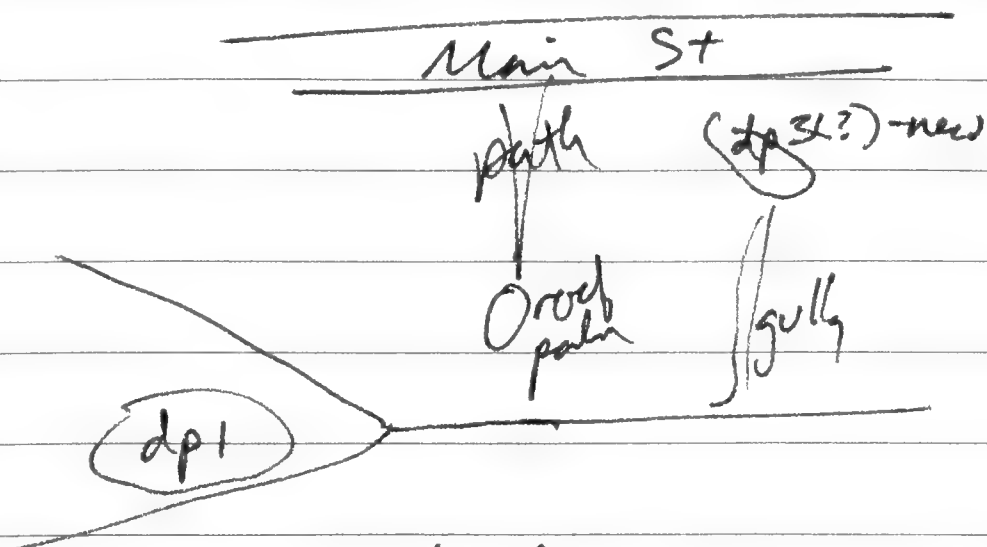 Main St
path
(dp3(?)-new
Orock
palm
gully
dp1